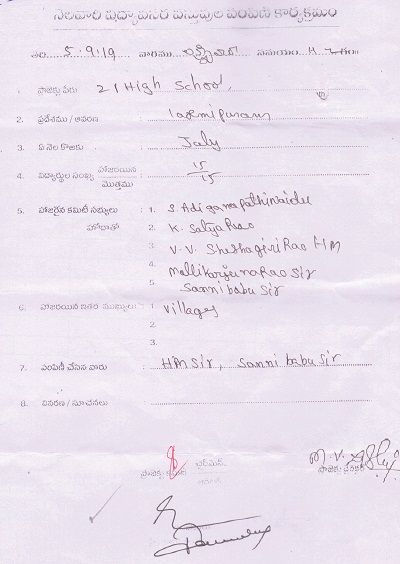 నెలవారి విద్యావసర వస్తువుల పంపిణీ కార్యక్రమం
తేది 5.9.19 వారము సమయం
1. ప్రాజెక్టు పేరు 21 High School,
2. ప్రదేశము / ఆవరణ laxmipuram
3. ఏ నెల కొఱకు July
4. విద్యార్థుల సంఖ్య హాజరయిన 15
మొత్తము 15
5. హాజరైన కమిటీ సభ్యులు 1. S. Adiganapathinaidu
హోదాతో 2. K. Satya Rao
3. V. V. Sheshagiri Rao HM
4. Mallikarjuna Rao Sir
5. Sanni babu Sir
6. హాజరయిన ఇతర ముఖ్యులు 1. Villages
2.
3.
7. పంపిణీ చేసిన వారు HM Sir, Sanni babu Sir
8. వివరణ / సూచనలు
చైర్మెన్
M. V.